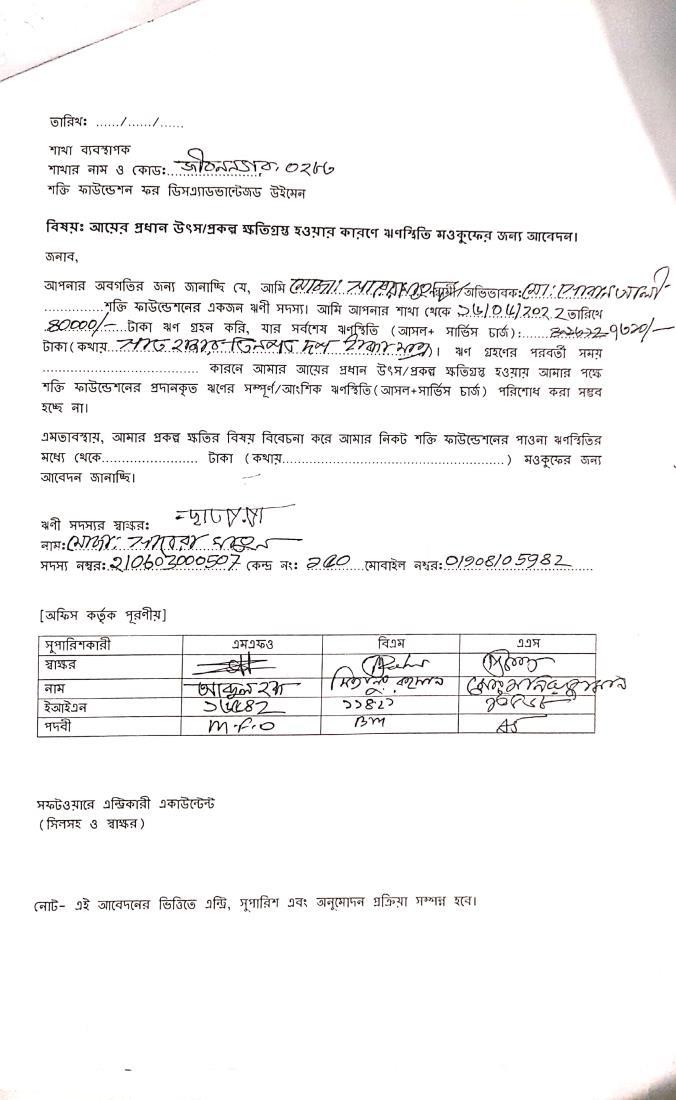 তারিখ: ....../....../......
শাখা ব্যবস্থাপক
শাখার নাম ও কোড: জীবননগর, ০২৮৬
শক্তি ফাউন্ডেশন ফর ডিসএ্যাডভান্টেজড উইমেন
বিষয়: আয়ের প্রধান উৎস/প্রকল্প ক্ষতিগ্রস্ত হওয়ার কারণে ঋণস্থিতি মওকুফের জন্য আবেদন।
জনাব,
আপনার অবগতির জন্য জানাচ্ছি যে, আমি মোছা: /অভিভাবক: মো:
..............শক্তি ফাউন্ডেশনের একজন ঋণী সদস্য। আমি আপনার শাখা থেকে তারিখে
80000/- টাকা ঋণ গ্রহন করি, যার সর্বশেষ ঋণস্থিতি (আসল+ সার্ভিস চার্জ):
টাকা (কথায় সাত হাজার তিনশত দশ টাকা মাত্র)। ঋণ গ্রহণের পরবর্তী সময়
.............................. কারনে আমার আয়ের প্রধান উৎস/প্রকল্প ক্ষতিগ্রস্ত হওয়ায় আমার পক্ষে
শক্তি ফাউন্ডেশনের প্রদানকৃত ঋণের সম্পূর্ণ/আংশিক ঋণস্থিতি(আসল+সার্ভিস চার্জ) পরিশোধ করা সম্ভব
হচ্ছে না।
এমতাবস্থায়, আমার প্রকল্প ক্ষতির বিষয় বিবেচনা করে আমার নিকট শক্তি ফাউন্ডেশনের পাওনা ঋণস্থিতির
মধ্যে থেকে...................... টাকা (কথায়..................................................) মওকুফের জন্য
আবেদন জানাচ্ছি।
ঋণী সদস্যর স্বাক্ষর:
নাম: মোছা:
সদস্য নম্বর: 210603000507 কেন্দ্র নং: মোবাইল নম্বর: 01908105982
[অফিস কর্তৃক পূরণীয়]
সুপারিশকারী এমএফও বিএম এএস
স্বাক্ষর
নাম
ইআইএন
পদবী M.F.O BM AS
সফটওয়ারে এন্ট্রিকারী একাউন্টেন্ট
(সিলসহ ও স্বাক্ষর)
নোট- এই আবেদনের ভিত্তিতে এন্ট্রি, সুপারিশ এবং অনুমোদন প্রক্রিয়া সম্পন্ন হবে।